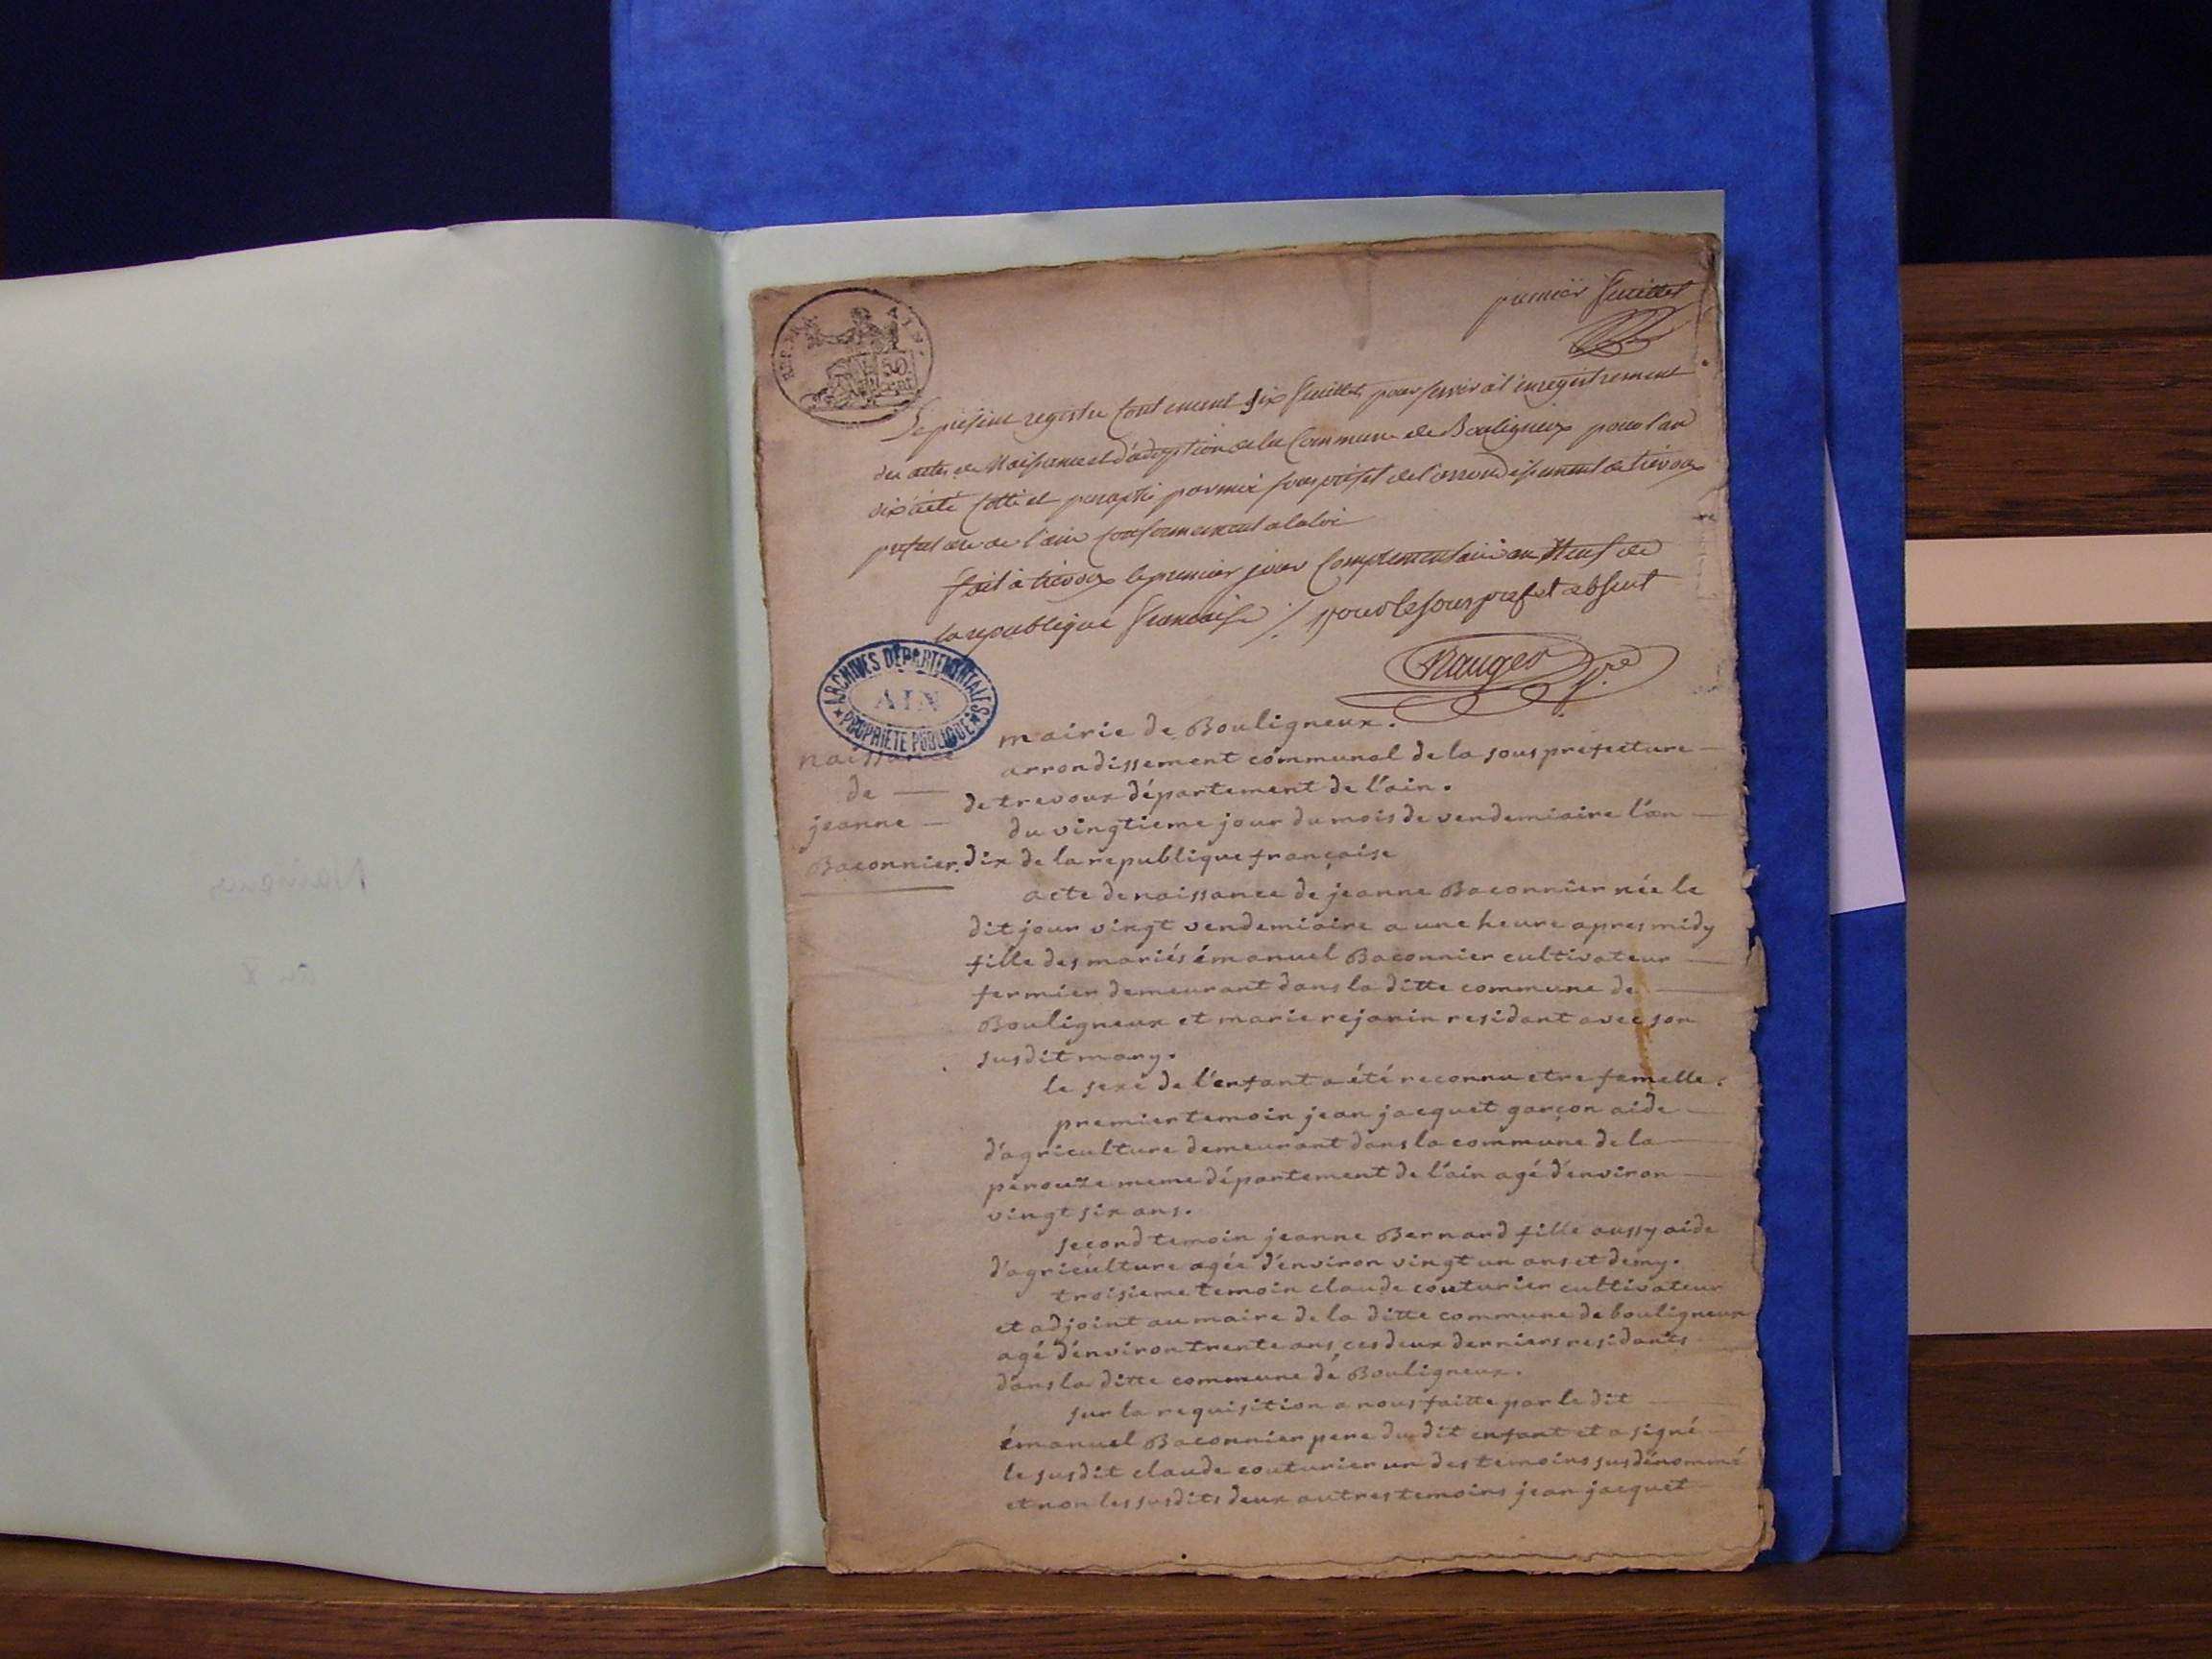 premier feuillet
REP. FRA.
AIN.
50
cent
Le présent registre contenant six feuillets pour servir à l'enregistrement
des actes de Naissance et d'adoption de la Commune de Bouligneux pour l'an
dix a été cotté et paraphé par moi sous préfet de l'arrondissement de trévoux
de l'ain conformement a la loi
fait à trévoux le premier jour Complementaire an Neuf de
la republique francaise ./. pour le sous prefet absent
ARCHIVES DÉPARTEMENTALES
AIN
PROPRIÉTÉ PUBLIQUE
mairie de Bouligneux.
arrondissement communal de la sous prefecture
de trevoux département de l'ain.
du vingtieme jour du mois de vendemiaire l'an
dix de la republique française
naissance
de
jeanne
Baconnier.
acte de naissance de jeanne Baconnier née le
dit jour vingt vendemiaire a une heure apres midy
fille des mariés émanuel Baconnier cultivateur
fermier demeurant dans la ditte commune de
Bouligneux et marie rejanin residant avec son
susdit mary.
le sexe de l'enfant a été reconnu etre femelle.
premier temoin jean jacquet garçon aide
d'agriculture demeurant dans la commune de la
perouze meme département de l'ain agé d'environ
vingt six ans.
second temoin jeanne Bernard fille aussy aide
d'agriculture agée d'environ vingt un ans et demy.
troisieme temoin claude couturier cultivateur
et adjoint au maire de la ditte commune de bouligneux
agé d'environ trente ans, ces deux derniers residants
dans la ditte commune de Bouligneux.
sur la requisition a nous faitte par le dit
émanuel Baconnier pere du dit enfant et a signé
le susdit claude couturier un des temoins susdénommé
et non les susdits deux autres temoins jean jacquet